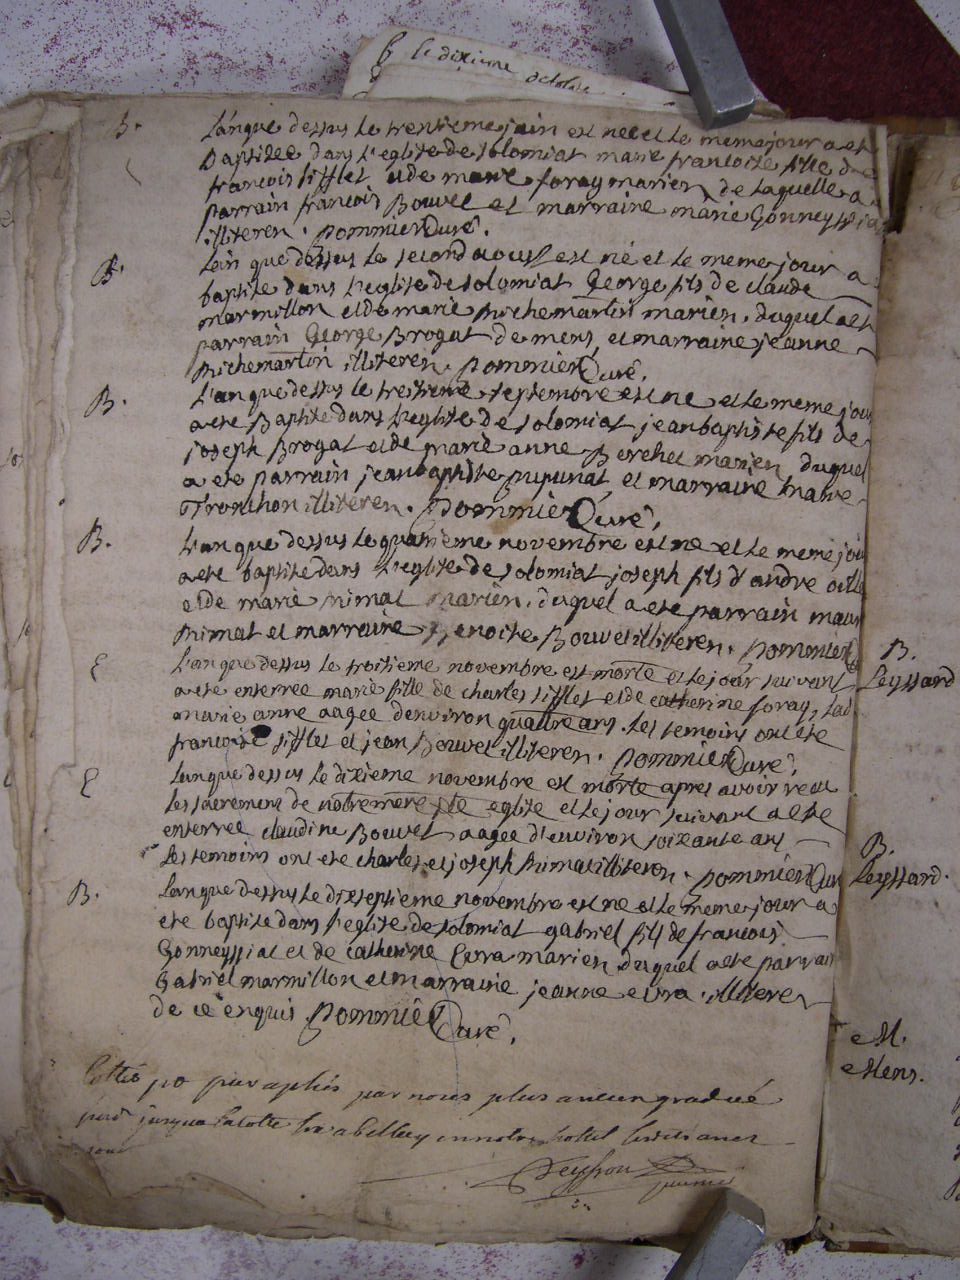 le dixieme
B. L'anque dessus le trentieme juin est nee et le meme jour a ete
baptisee dans l'eglise de solomiat marie francoise fille de
francois sifflet et de marie foray mariez de laquelle a
parrain francois Bouvet et marraine marie Gonneyssia
illiteren. pommier Curé.
B. L'an que dessus le second aoust est né et le meme jour a
baptise dans l'eglise de solomiat George fils de claude
marmillon et de marie michemartin mariën. duquel a ete
parrain George Brogat de mens, et marraine jeanne
michemartin illiteren. pommier Curé.
B. L'anque dessus le treitieme septembre est né et le meme jour
a ete Baptise dans l'eglise de solomiat jean baptiste fils de
joseph Brogat et de marie anne Berchet mariën duquel
a ete parrain jean baptiste pupunat et marraine marie
Tronchon illiteren. pommier Curé.
B. L'anque dessus le quatrieme novembre est né et le meme jou
a ete baptise dans l'eglise de solomiat joseph fils d'andre
et de marie mimat mariën. duquel a ete parrain
mimat et marraine Benoite Bouvet illiteren. pommier C
E L'anque dessus le troitieme novembre est morte et le jour suivant
a ete enterree marie fille de charles sifflet et de catherine foray, lad
marie anne aagee d'environ quattre ans. les temoins ont ete
francoise sifflet et jean Bouvet illiteren. pommier Curé.
E L'anque dessus le dixieme novembre est morte apres avoir recu
les sacrements de notre mere ste eglise et le jour suivant a ete
enterree claudine Bouvet aagee d'environ soixante ans
les temoins ont ete charles et joseph mimat illiteren. pommier Cur
B. L'anque dessus le dixseptieme novembre est né et le meme jour a
ete baptise dans l'eglise de solomiat gabriel fils de francois
Gonneyssiat et de catherine Cura mariën duquel a ete parrain
Gabriel marmillon et marraine jeanne illiteren
de ce enquis pommier Curé.
par nous plus ancien gradué
en notre hottel
B.
Leyssard
B.
Leyssard.
M.
Mens.